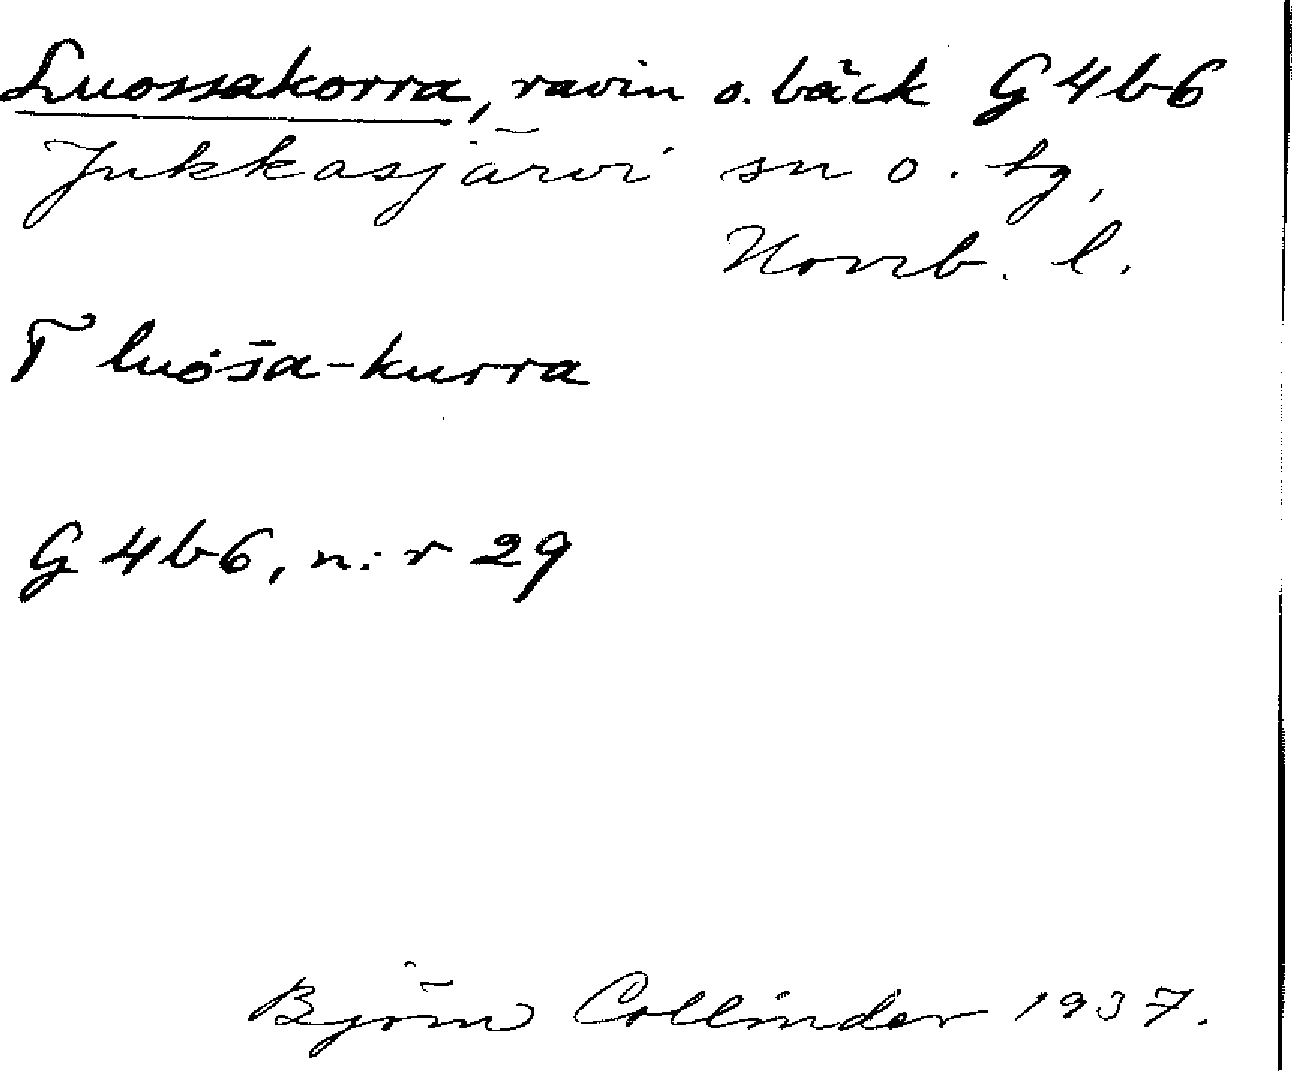 Luossakorra, ravin o. bäck G 4 b 6
Jukkasjärvi sn o. tg,
Norrb. l.
F luȯs̄a-kurra
G 4 b 6, n:r 29
Björn Collinder 1937.